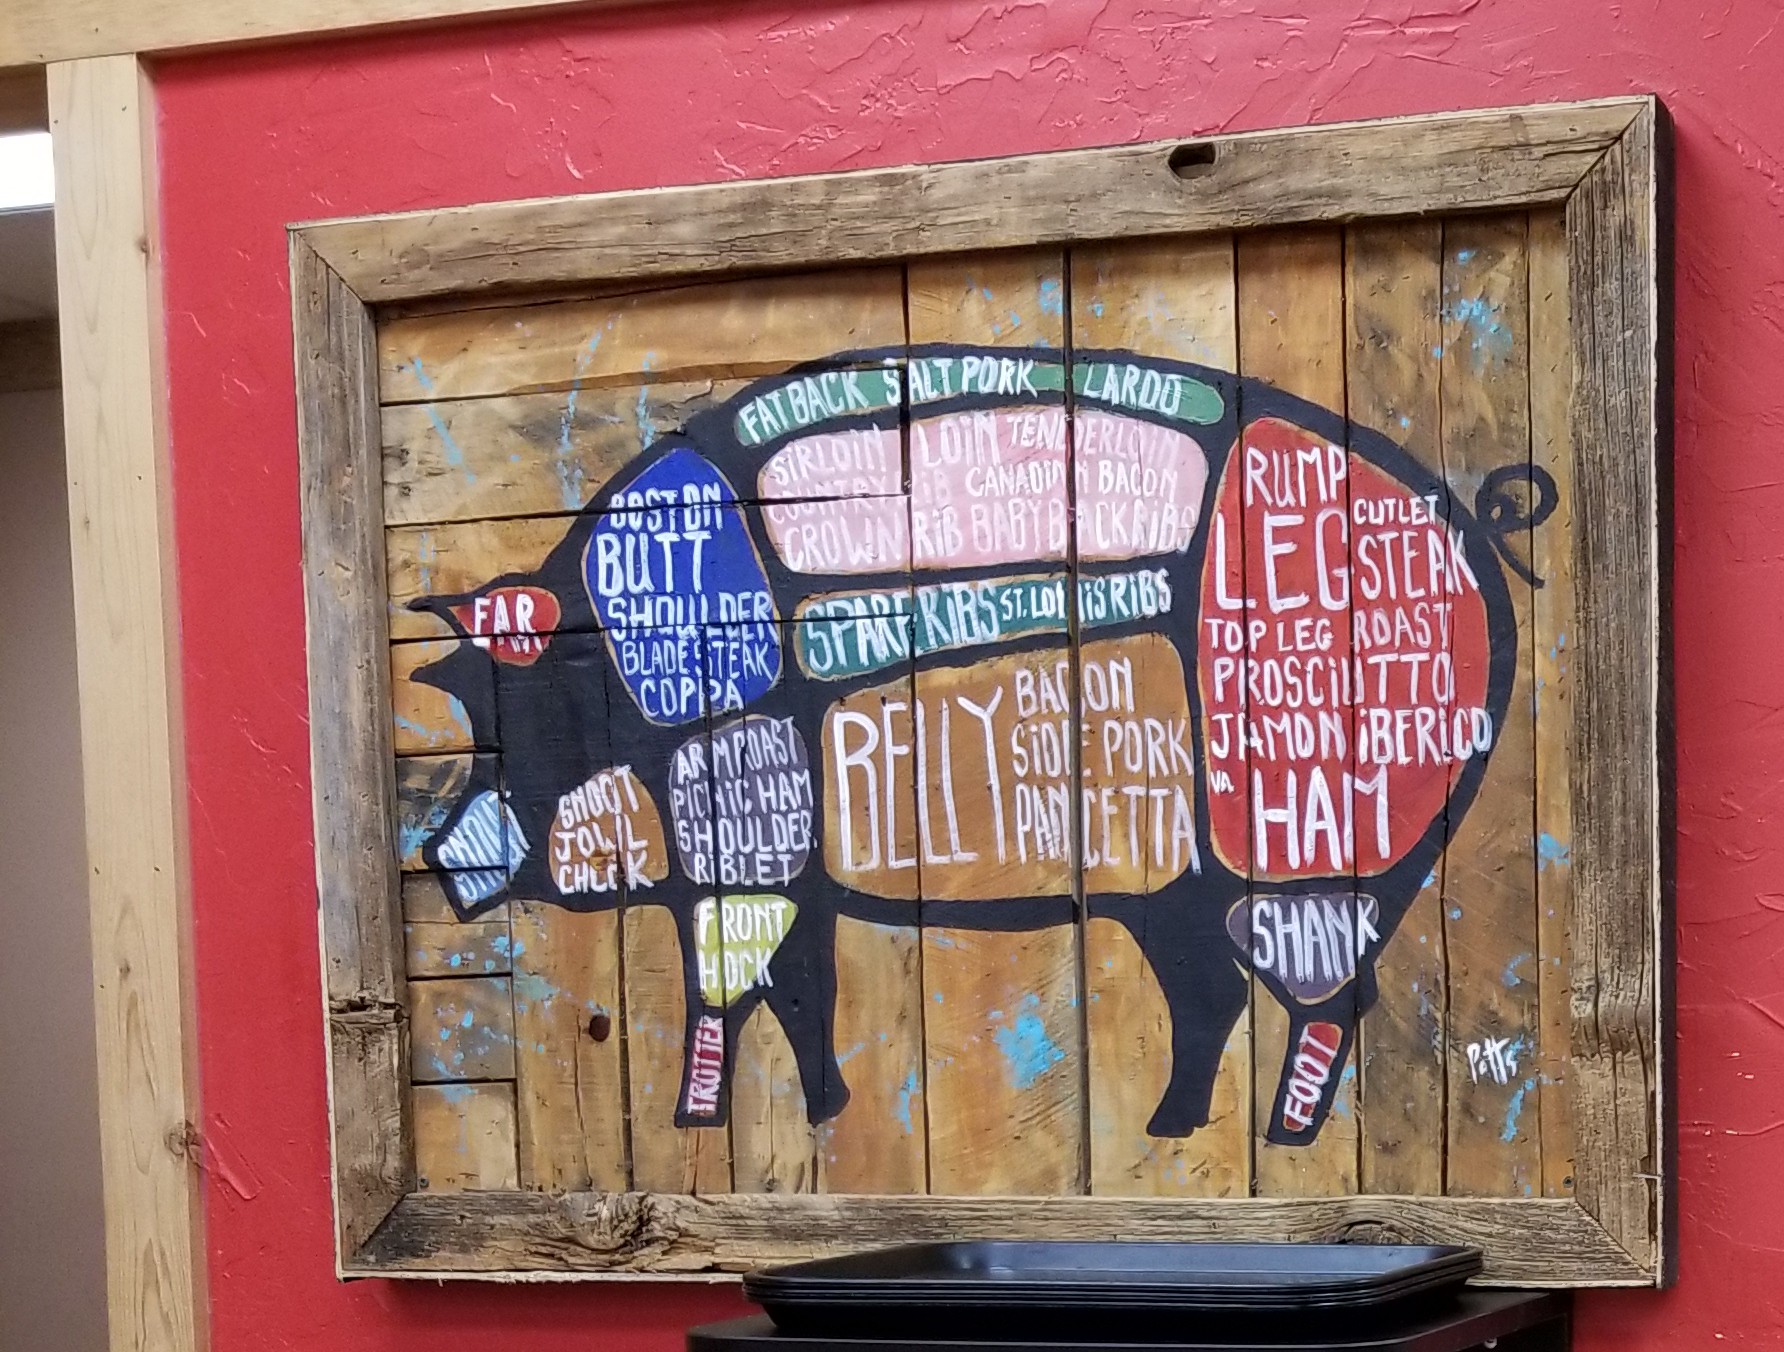 FATBACK SALT PORK LARDO
SIRLOIN LOIN TENDERLOIN
COUNTRY RIB CANADIAN BACON
CROWN RIB BABY BACK RIBS
SPARE RIBS ST. LOUIS RIBS
BOSTON
BUTT
SHOULDER
BLADE STEAK
COPPA
EAR
SNOUT
SNOOT
JOWL
CHEEK
ARM ROAST
PICNIC HAM
SHOULDER
RIBLET
FRONT
HOCK
TROTTER
BELLY
BACON
SIDE PORK
PANCETTA
RUMP
CUTLET
LEG STEAK
TOP LEG ROAST
PROSCIUTTO
JAMON IBERICO
HAM
SHANK
FOOT
Potts